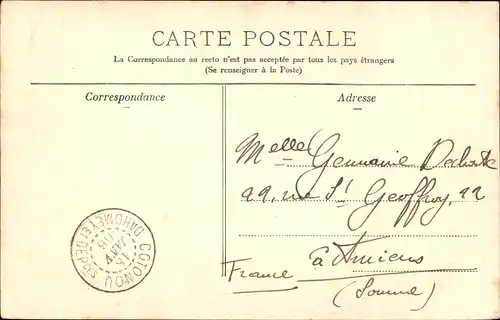 CARTE POSTALE
La Correspondance au recto n'est pas acceptée par tous les pays étrangers
(Se renseigner à la Poste)
Correspondance
Adresse
Melle Germaine
22, rue St Geoffroy, 22
à Amiens
France
(Somme)
COTONOU
DAHOMEY ET DEP